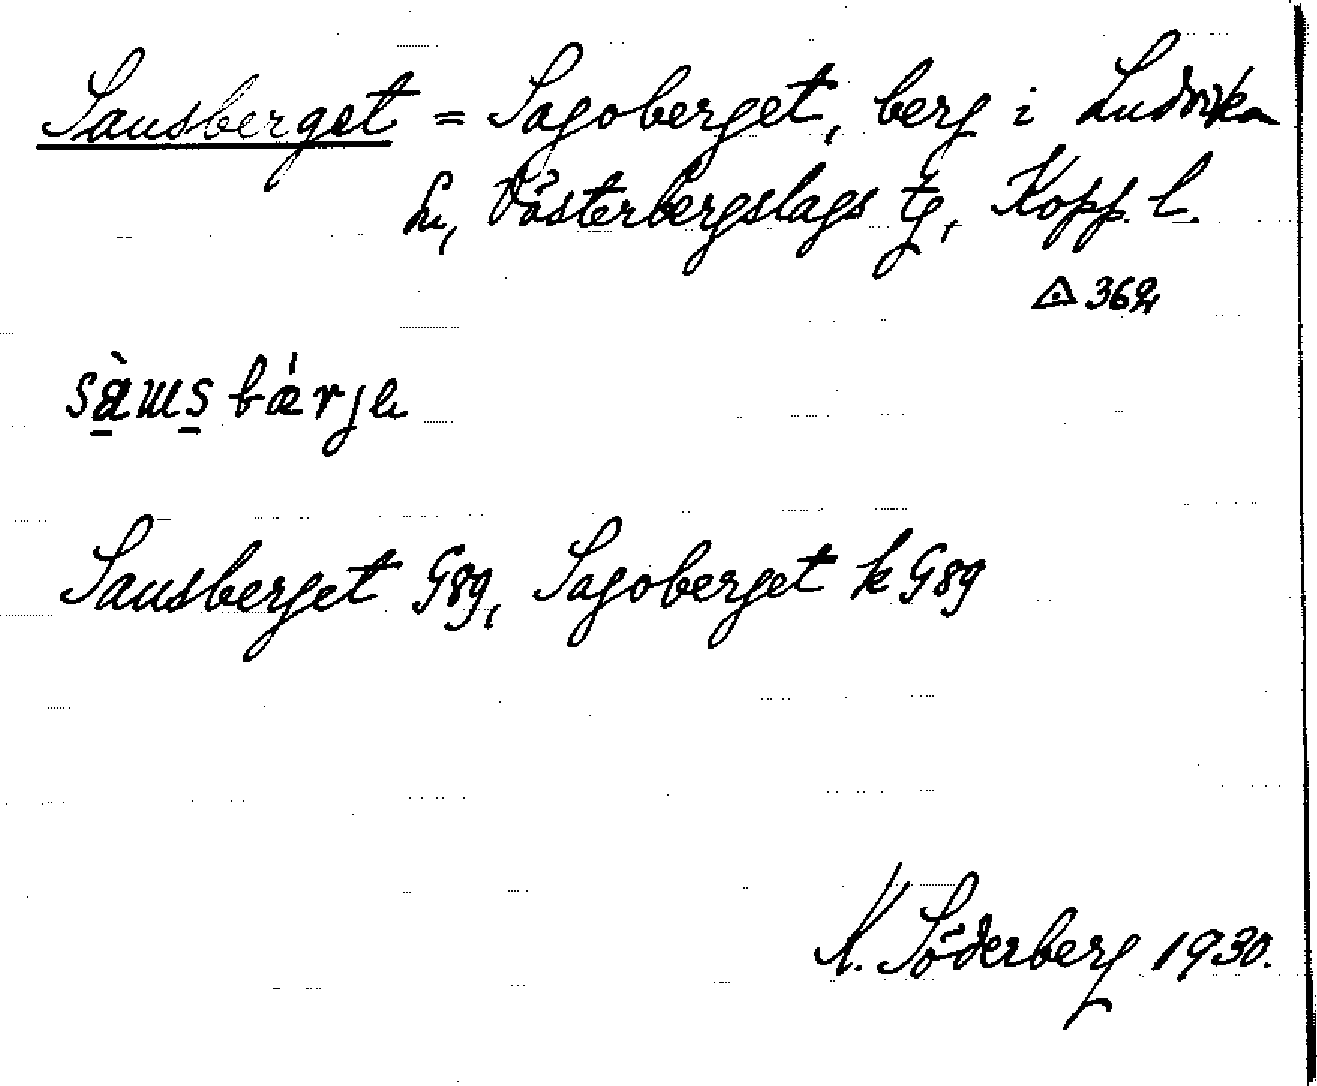 Sausberget = Sagoberget, berg i Ludvika
sn, Västerbergslags tg, Kopp. l.
△ 362
Sausberget G89, Sagoberget k G89
N. Söderberg 1930.